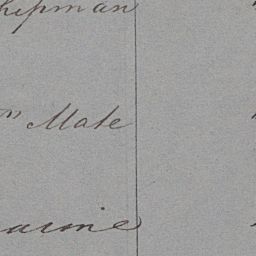 hipman
" Mate
arine